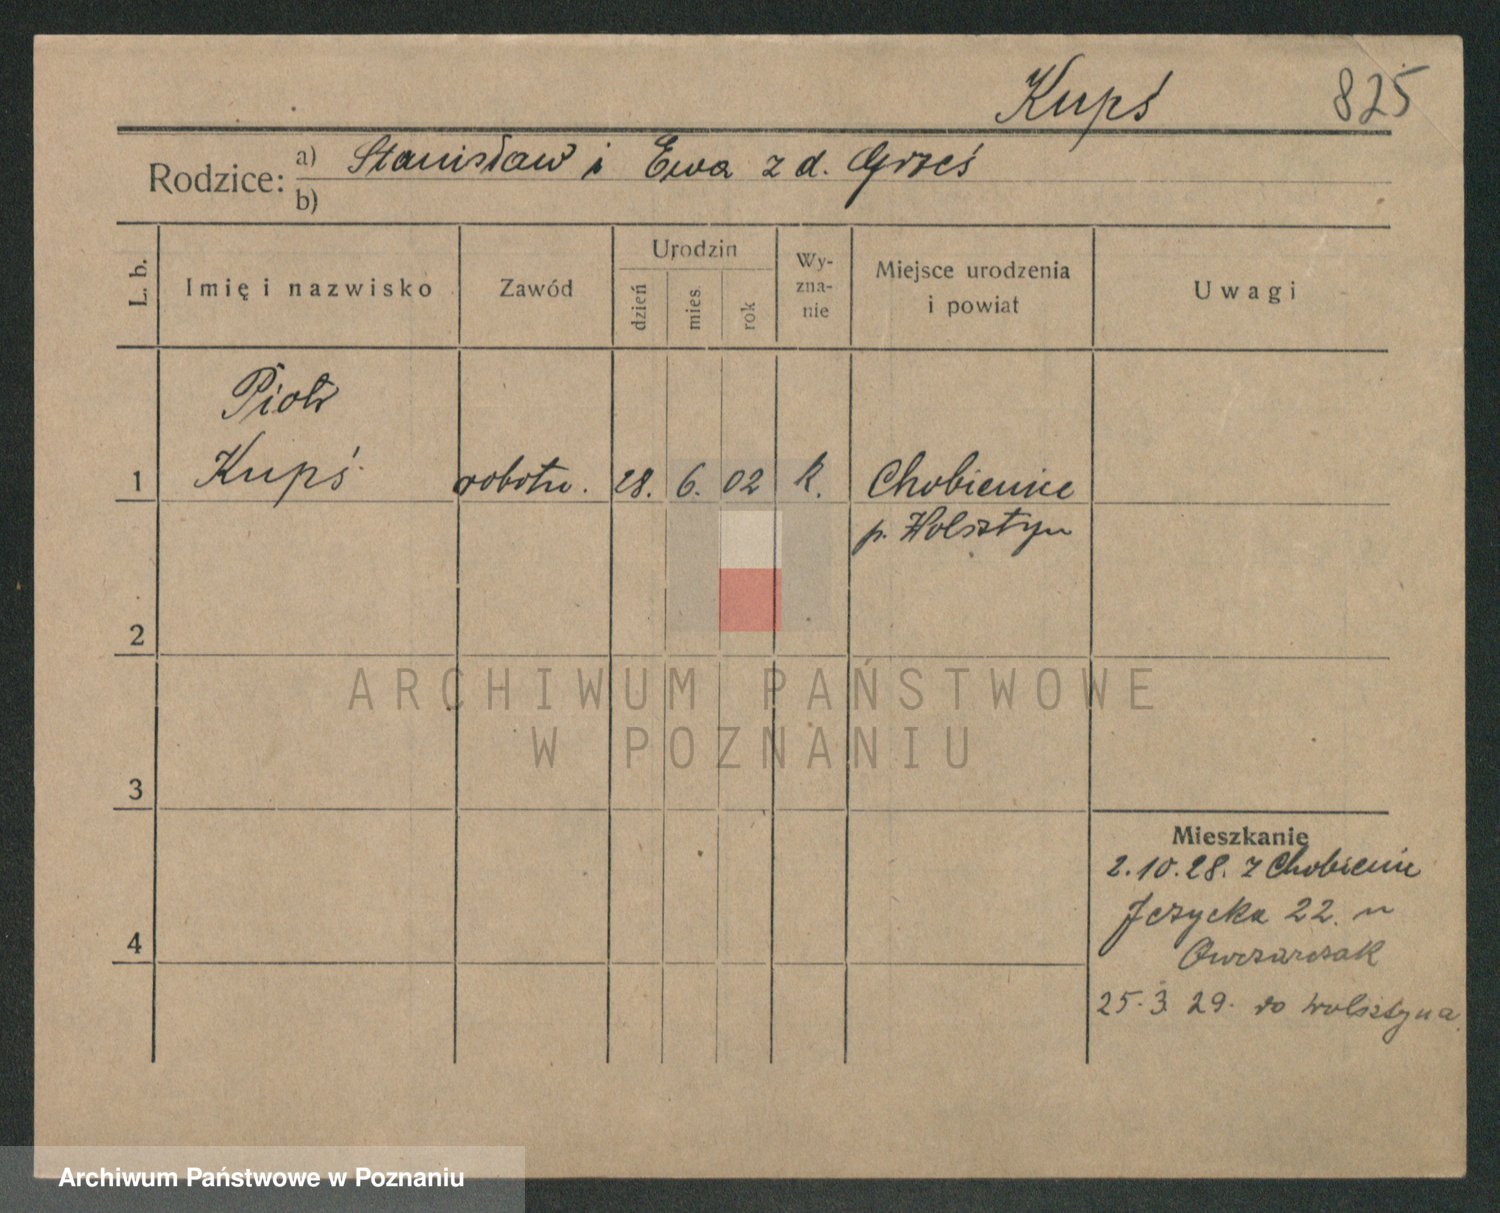 Kupś 825
Rodzice: a) Stanisław i Ewa z d. Grześ
b)
L. b.
Imię i nazwisko
Zawód
Urodzin
dzień
mies.
rok
Wy-
zna-
nie
Miejsce urodzenia
i powiat
Uwagi
Piotr
1 Kupś robotn. 28. 6. 02 k. Chobienice
p. Wolsztyn
2
3
4
Mieszkanie
2.10.28. z Chobienic
Jeżycka 22. u
Owczarczak
25.3 29. do Wolsztyna
ARCHIWUM PAŃSTWOWE
W POZNANIU
Archiwum Państwowe w Poznaniu